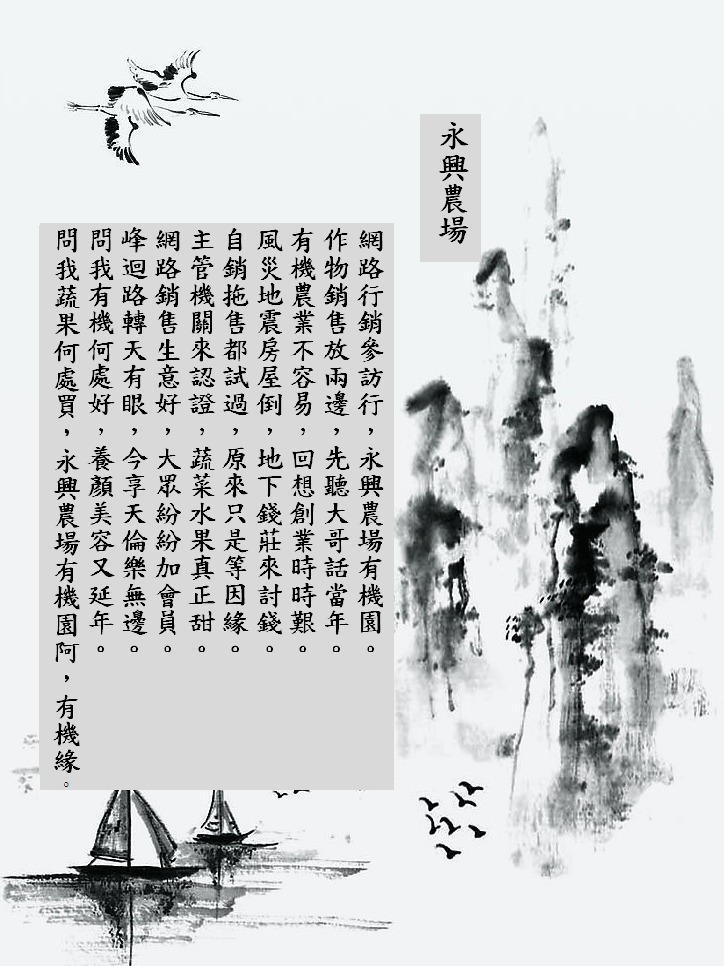 永興農場
網路行銷參訪行，永興農場有機園。
作物銷售放兩邊，先聽大哥話當年。
有機農業不容易，回想創業時時艱。
風災地震房屋倒，地下錢莊來討錢。
自銷拖售都試過，原來只是等因緣。
主管機關來認證，蔬菜水果真正甜。
網路銷售生意好，大眾紛紛加會員。
峰迴路轉天有眼，今享天倫樂無邊。
問我有機何處好，養顏美容又延年。
問我蔬果何處買，永興農場有機園阿，有機緣。